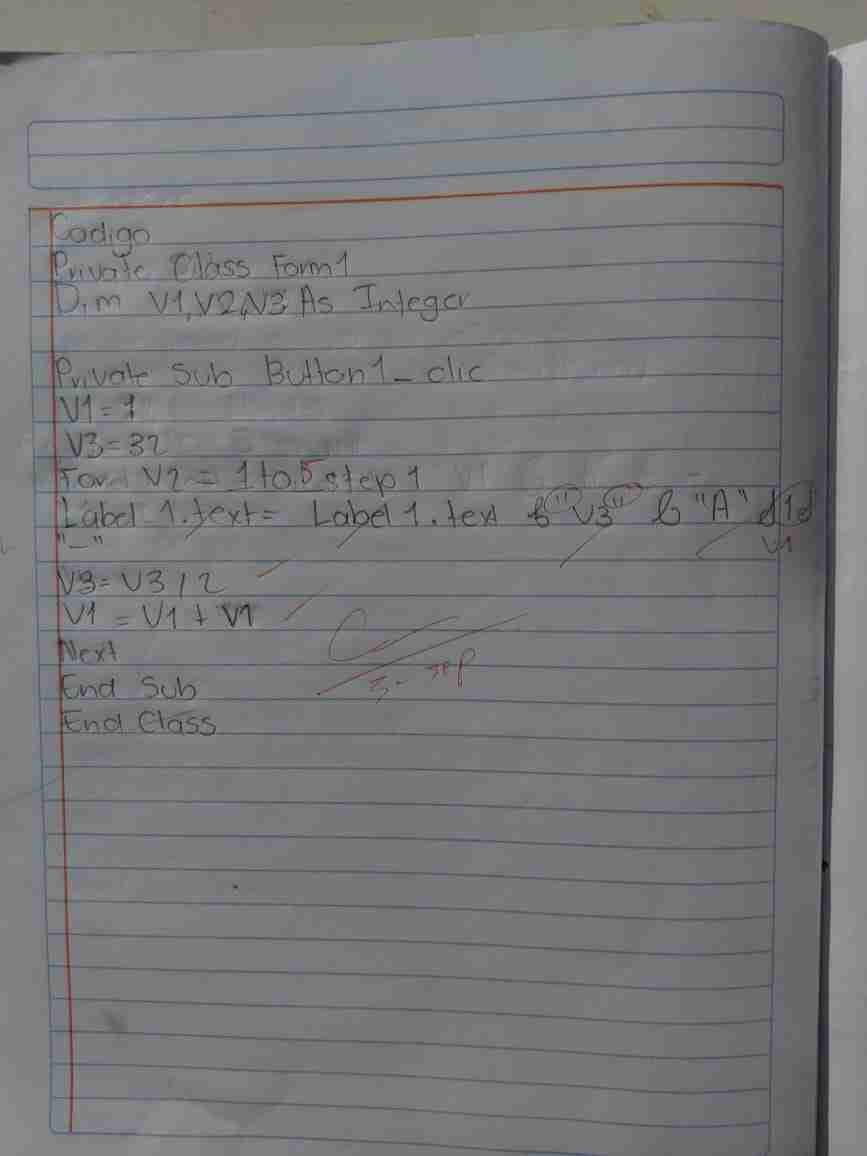 Codigo
Private Class Form1
Dim V1,V2,V3 As Integer
Private Sub Button1_clic
V1=1
V3=32
For V2=1 to 5 step 1
Label 1.text= Label 1.text & "V3" & "A" & 1 &
V1
"-"
V3=V3/2
V1=V1+V1
Next
3-sep
End Sub
End Class